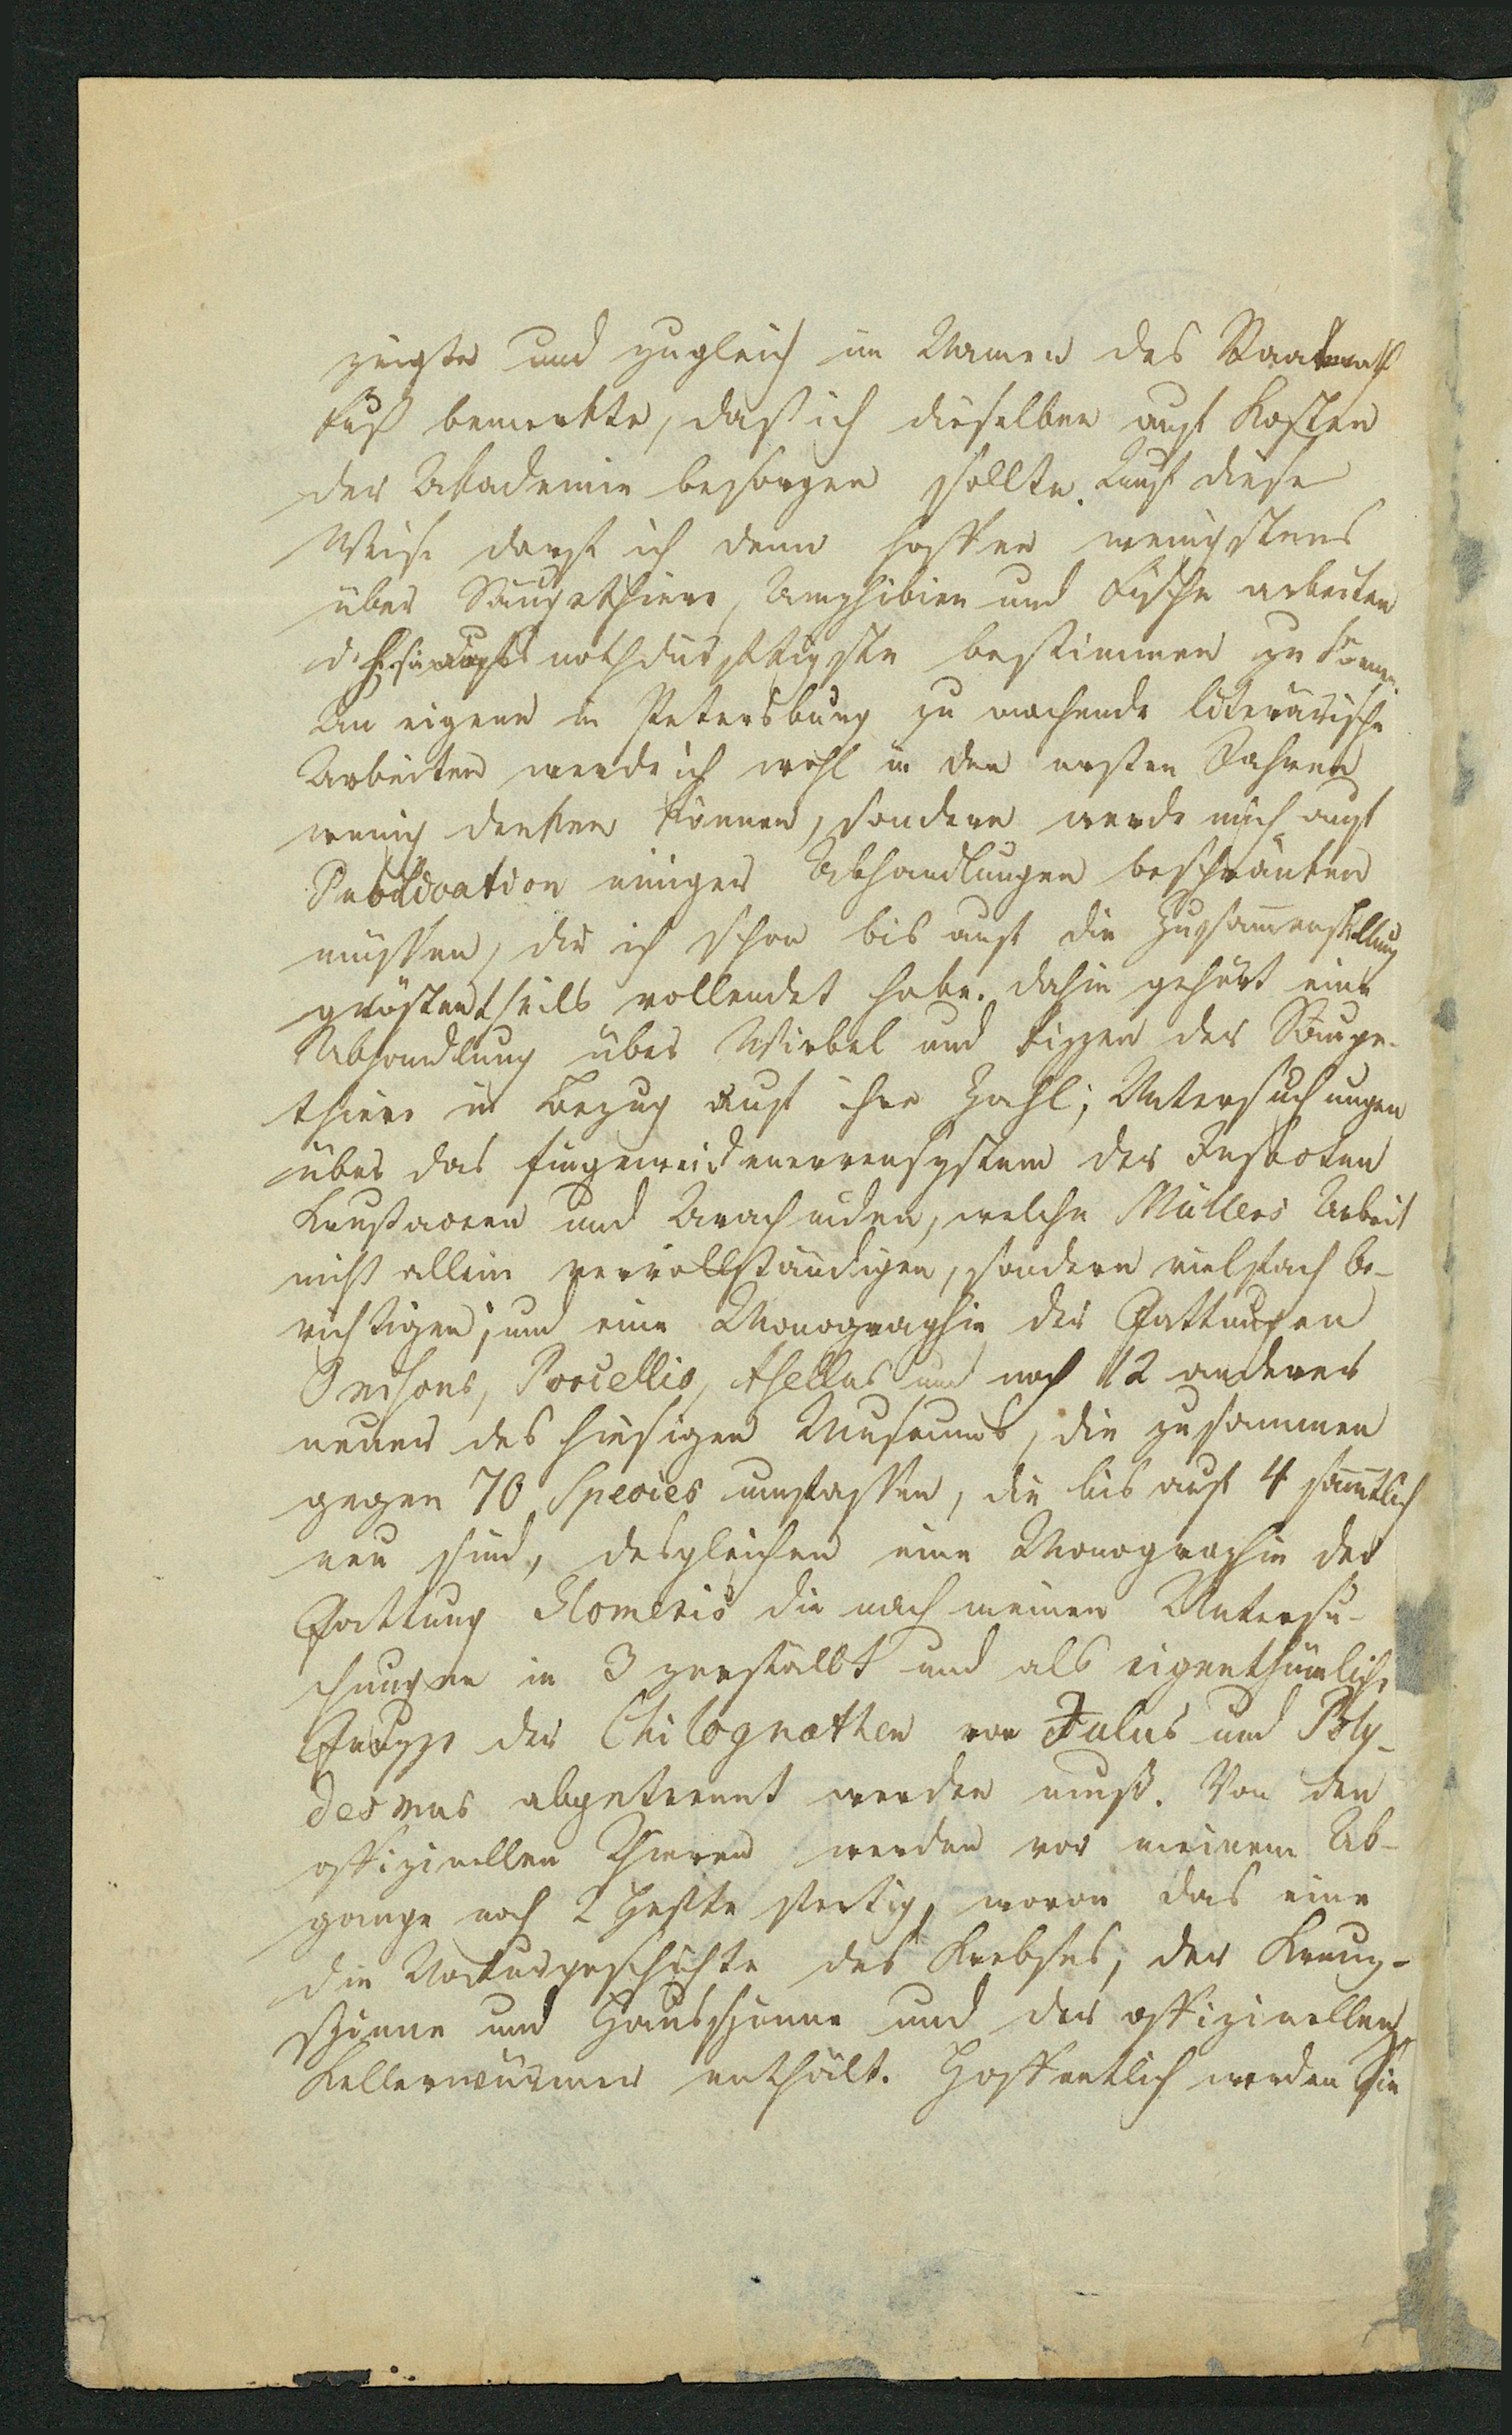 zeigte und zugleich im Namen des Staatsrath
Fuß bemerkte, daß ich dieselben auf Kosten
der Akademie besorgen sollte. Auf diese
Weise darf ich denn hoffen wenigstens
über Säugethiere, Amphibien und Fische arbeiten
d. h. sie aufs nothdürftigste bestimmen zu können.
An eigene in Petersburg zu machende literärische
Arbeiten werde ich wohl in den ersten Jahren
wenig denken können, sondern werde mich auf
Publication einiger Abhandlungen beschränken
müssen, die ich schon bis auf die Zusam̄enstellung
gröstentheils vollendet habe. Dahin gehört eine
Abhandlung über Wirbel und Rippen der Säuge-
thiere in Bezug auf ihre Zahl; Untersuchungen
über das Eingeweidenervensystem der Insecten
Krustaceen und Arachniden, welche Müllers Arbeit
nicht allein vervollständigen, sondern vielfach be-
richtigen; und eine Monographie der Gattungen
Oniscus, Porcellio, Asellus und noch 12 anderer
neuer des hiesigen Museums, die zusammen
gegen 70 Species umfassen, die bis auf 4 säm̄tlich
neu sind, desgleichen eine Monographie der
Gattung Glomeris die nach meinen Untersu-
chungen in 3 zerfällt und als eigenthümliche
Gruppe der Chilognathen von Julus und Poly-
desmus abgetrennt werden muß. Von den
offizinellen Thieren werden vor meinem Ab-
gange noch 2 Hefte fertig, wovon das eine
die Naturgeschichte des Krebses, der Kreuz-
spinne und Hausspinne und der offizinellen
Kellerwürmer enthält. Hoffentlich werden Sie